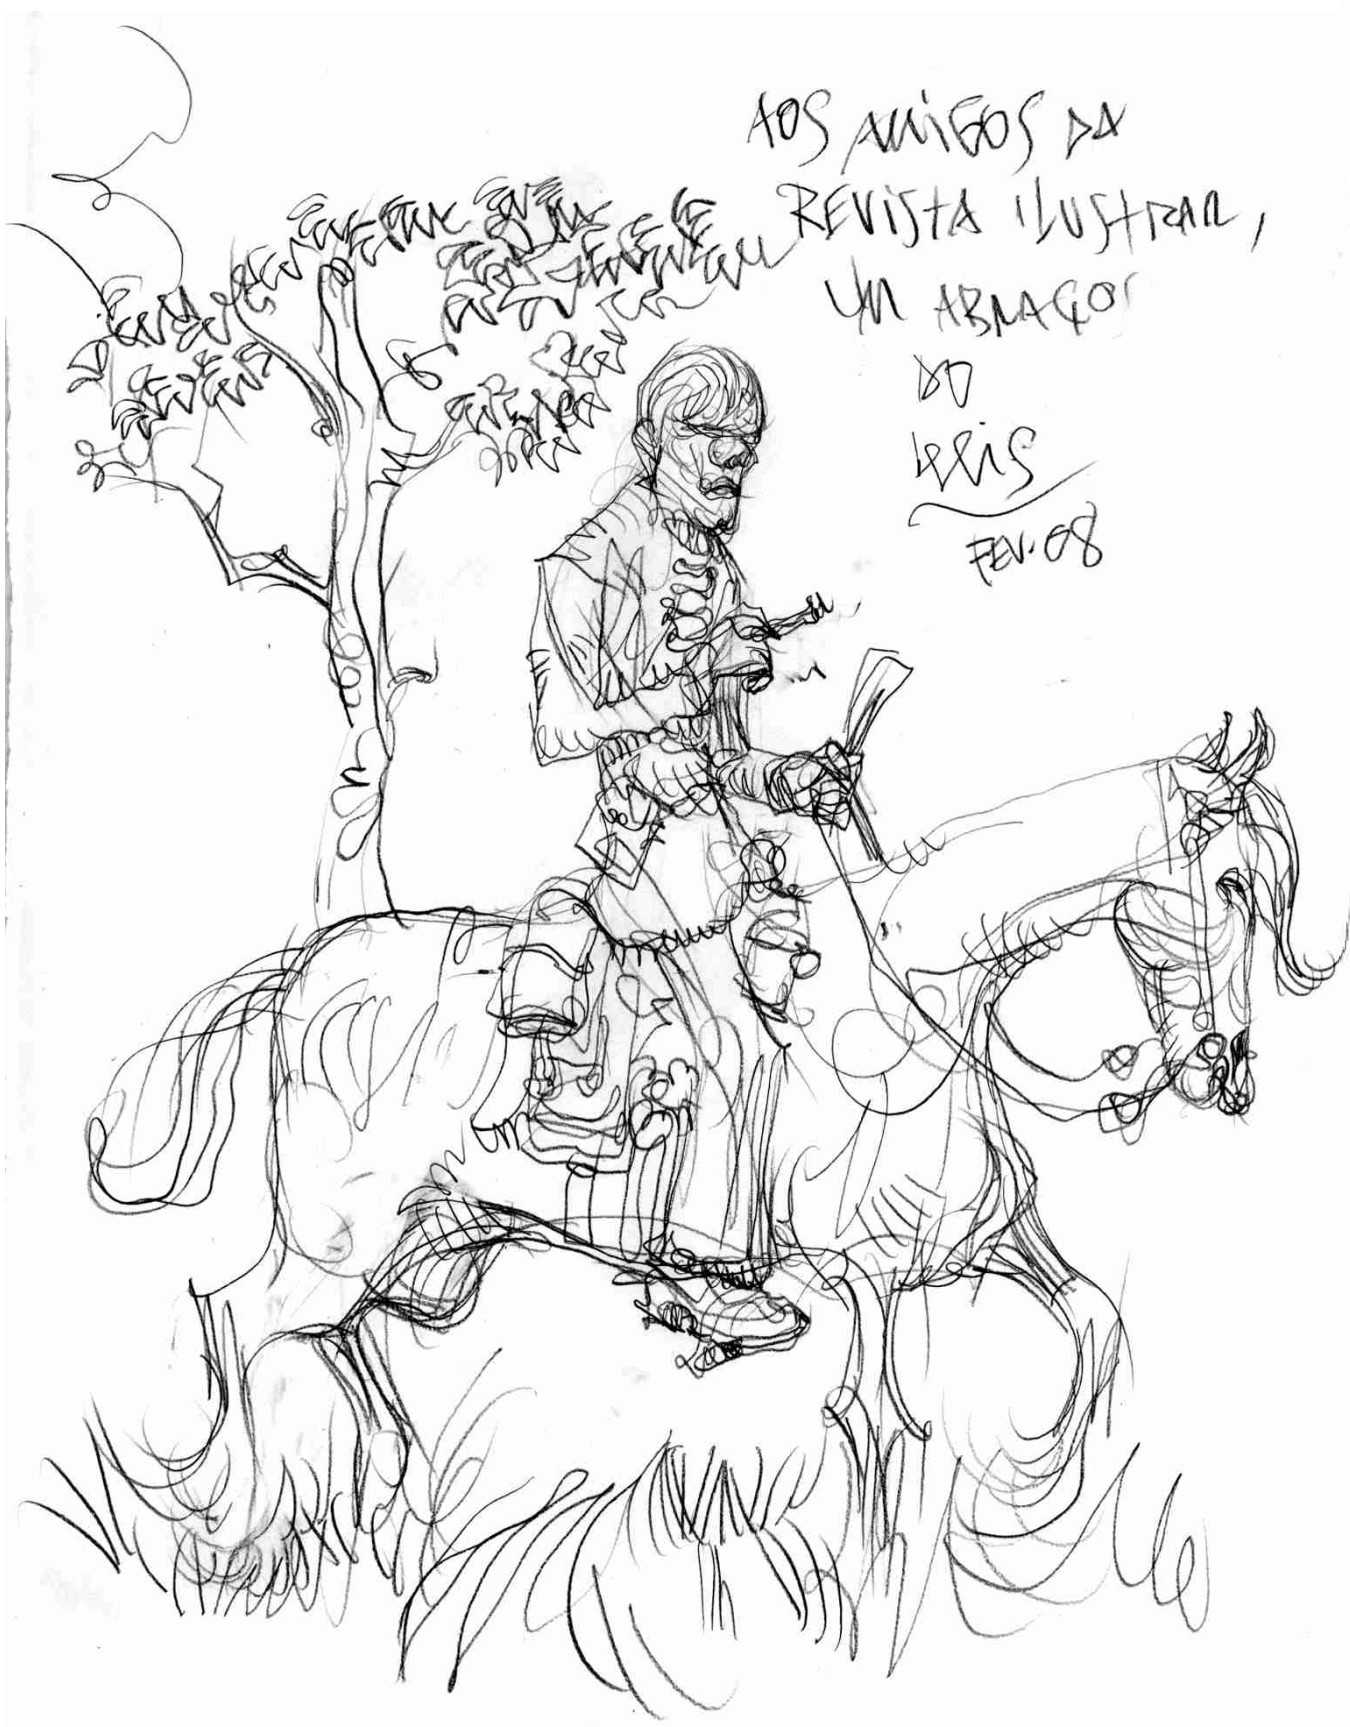 AOS AMIGOS DA
REVISTA ILUSTRAR,
UM ABRAÇO
DO
FEV. 08